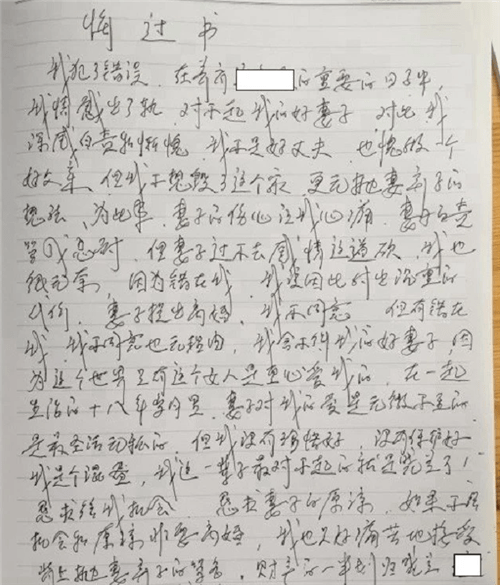 悔过书
我犯了错误。在养育 的重要的日子里,
我情感出了轨 对不起我的好妻子 对此我
深感自责和惭愧 我不是好丈夫 也愧做一个
好父亲 但我不想毁了这个家 更无抛妻弃子的
想法,为此事,妻子的伤心让我心痛,妻
但妻子过不去感情这道坎,我也
很无奈,因为错在我,我要因此付出沉重的
代价,妻子提出离婚,我不同意 但有错在
我 我不同意也无理由,我舍不得我的好妻子,因
为这个世界只有这个女人是真心爱我的,在一起
生活的十八年岁月里,妻子对我的爱是无微不至的
是最圣洁无私的 但我没有珍惜好,没有保护好
我是个混蛋,我这一辈子最对不起的就是
恳求给我机会 恳求妻子的原谅,如果不给
机会和原谅非要离婚,我也只好痛苦地接受
背上抛妻弃子的 财产